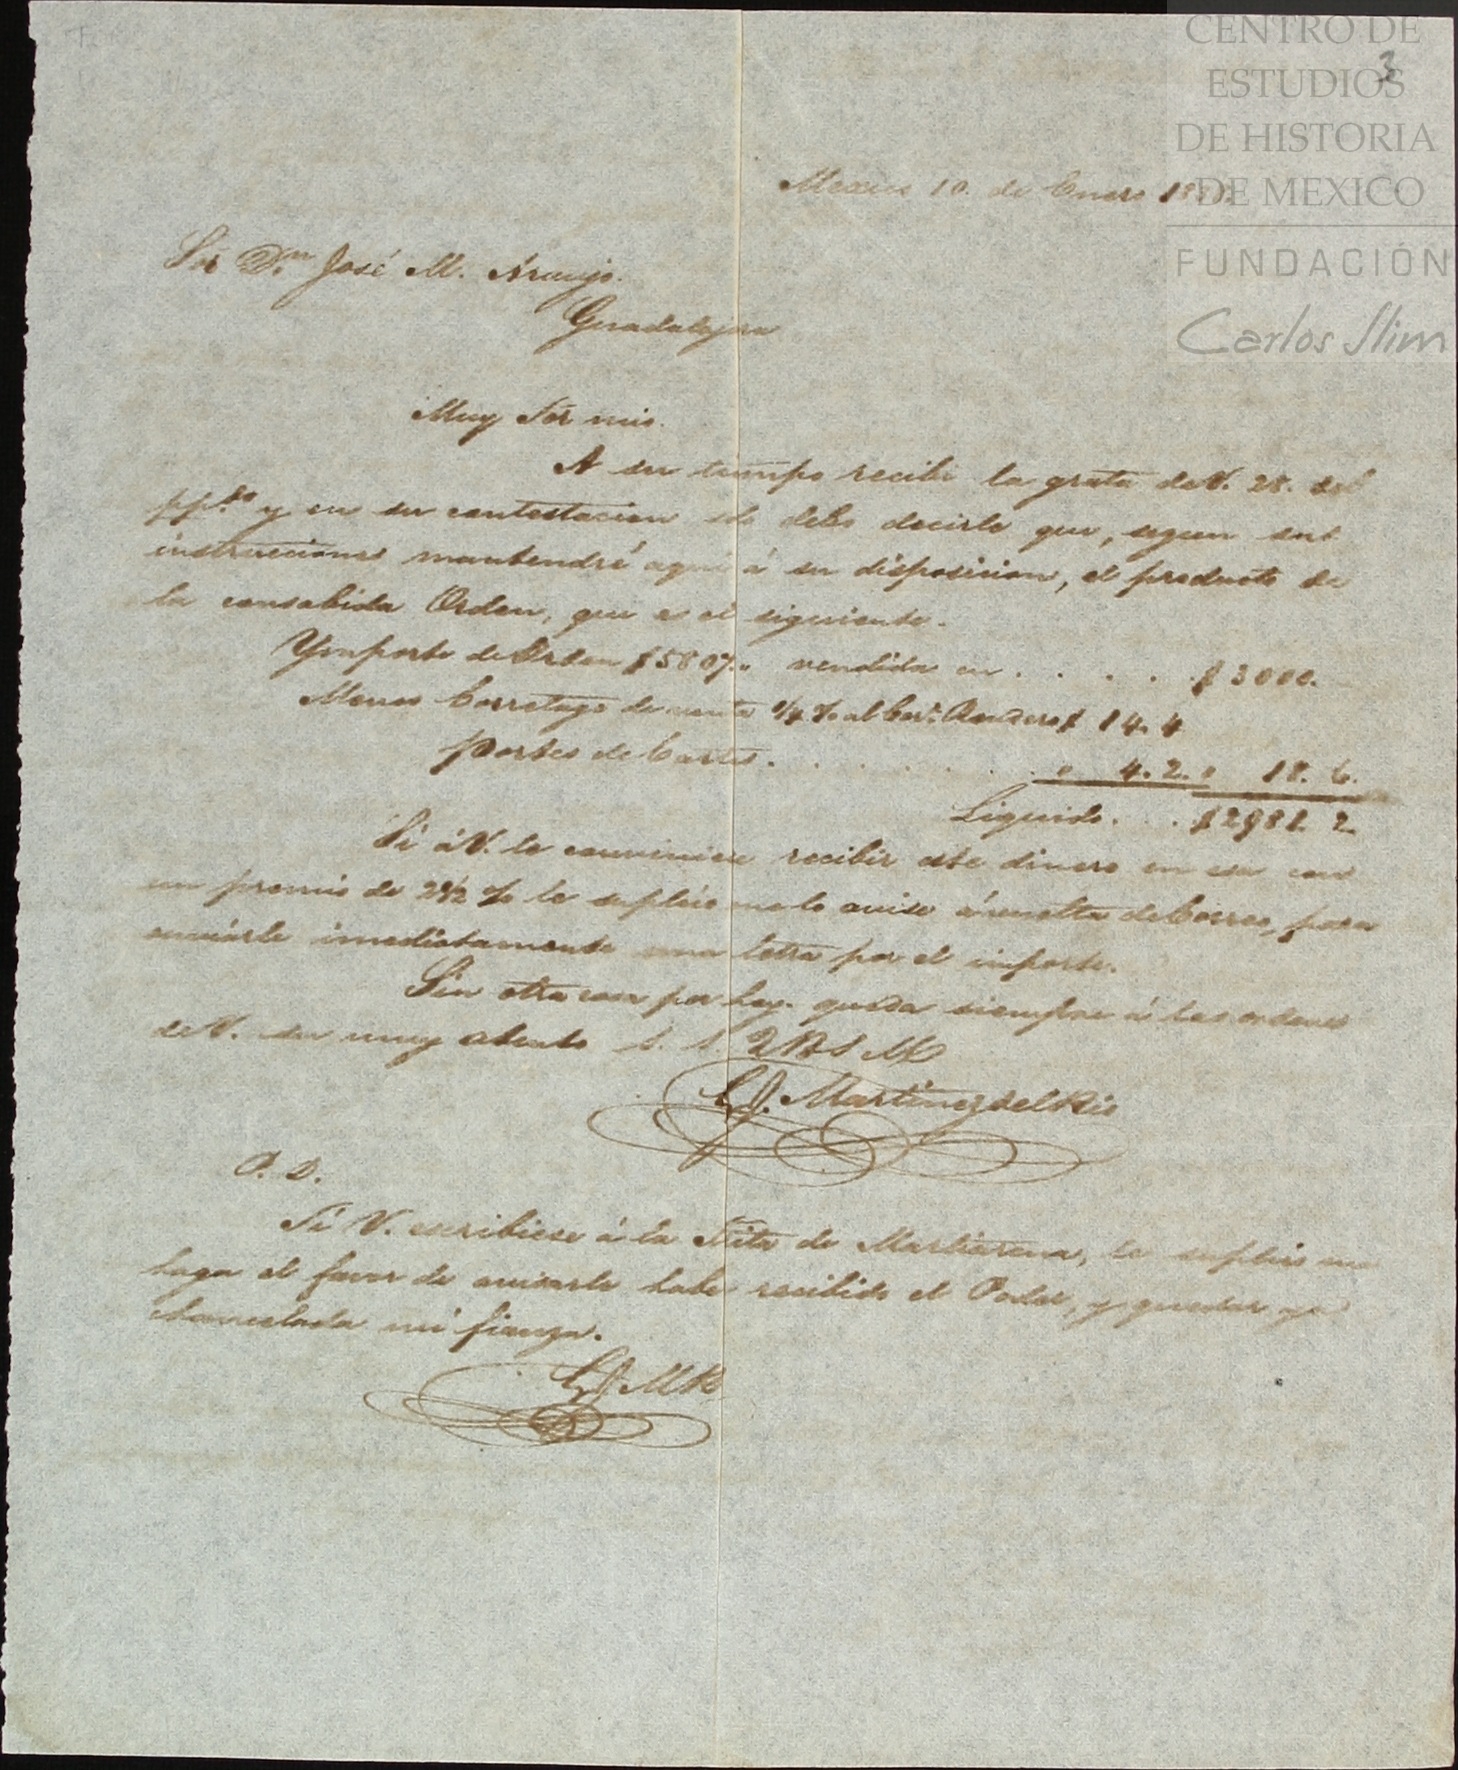 CENTRO DE
ESTUDIOS
DE HISTORIA
DE MEXICO
FUNDACIÓN
Carlos Slim
3
Mexico 10. de Enero
Sor Dn. José M. Araujo.
Guadalajara
Muy Sor mio.
A su tiempo recibi la grata de V. 28. del
pp.do y en su contestacion solo debo decirle que, segun sus
instrucciones mantendré aquí á su disposicion, el producto de
la consabida Orden, que es el siguiente.
Ymporte de Orden $5807.. vendida en . . . . . $3000.
Menos Corretage de venta 1/4 % al Corr. $ 14. 4
Portes de Cartas. . . . . . . . . . " 4. 2. " 18. 6.
Liquido. . . $2981. 2.
Si á V. le conviniese recibir este dinero en esa con
un premio de 2 1/2 % le suplico me lo avise á vuelta de Correo, para
enviarle imediatamente una letra por el importe.
Sin otra cosa por hoy. queda siempre á las ordenes
de V. su muy atento S. S. Q B S M
G J. Martinez del Rio
P. D.
Si V. escribiese á la Srita de Martiarena, le suplico me
haga el favor de avisarle haber recibido el Poder, y quedar ya
chancelada mi fianza.
G J M R